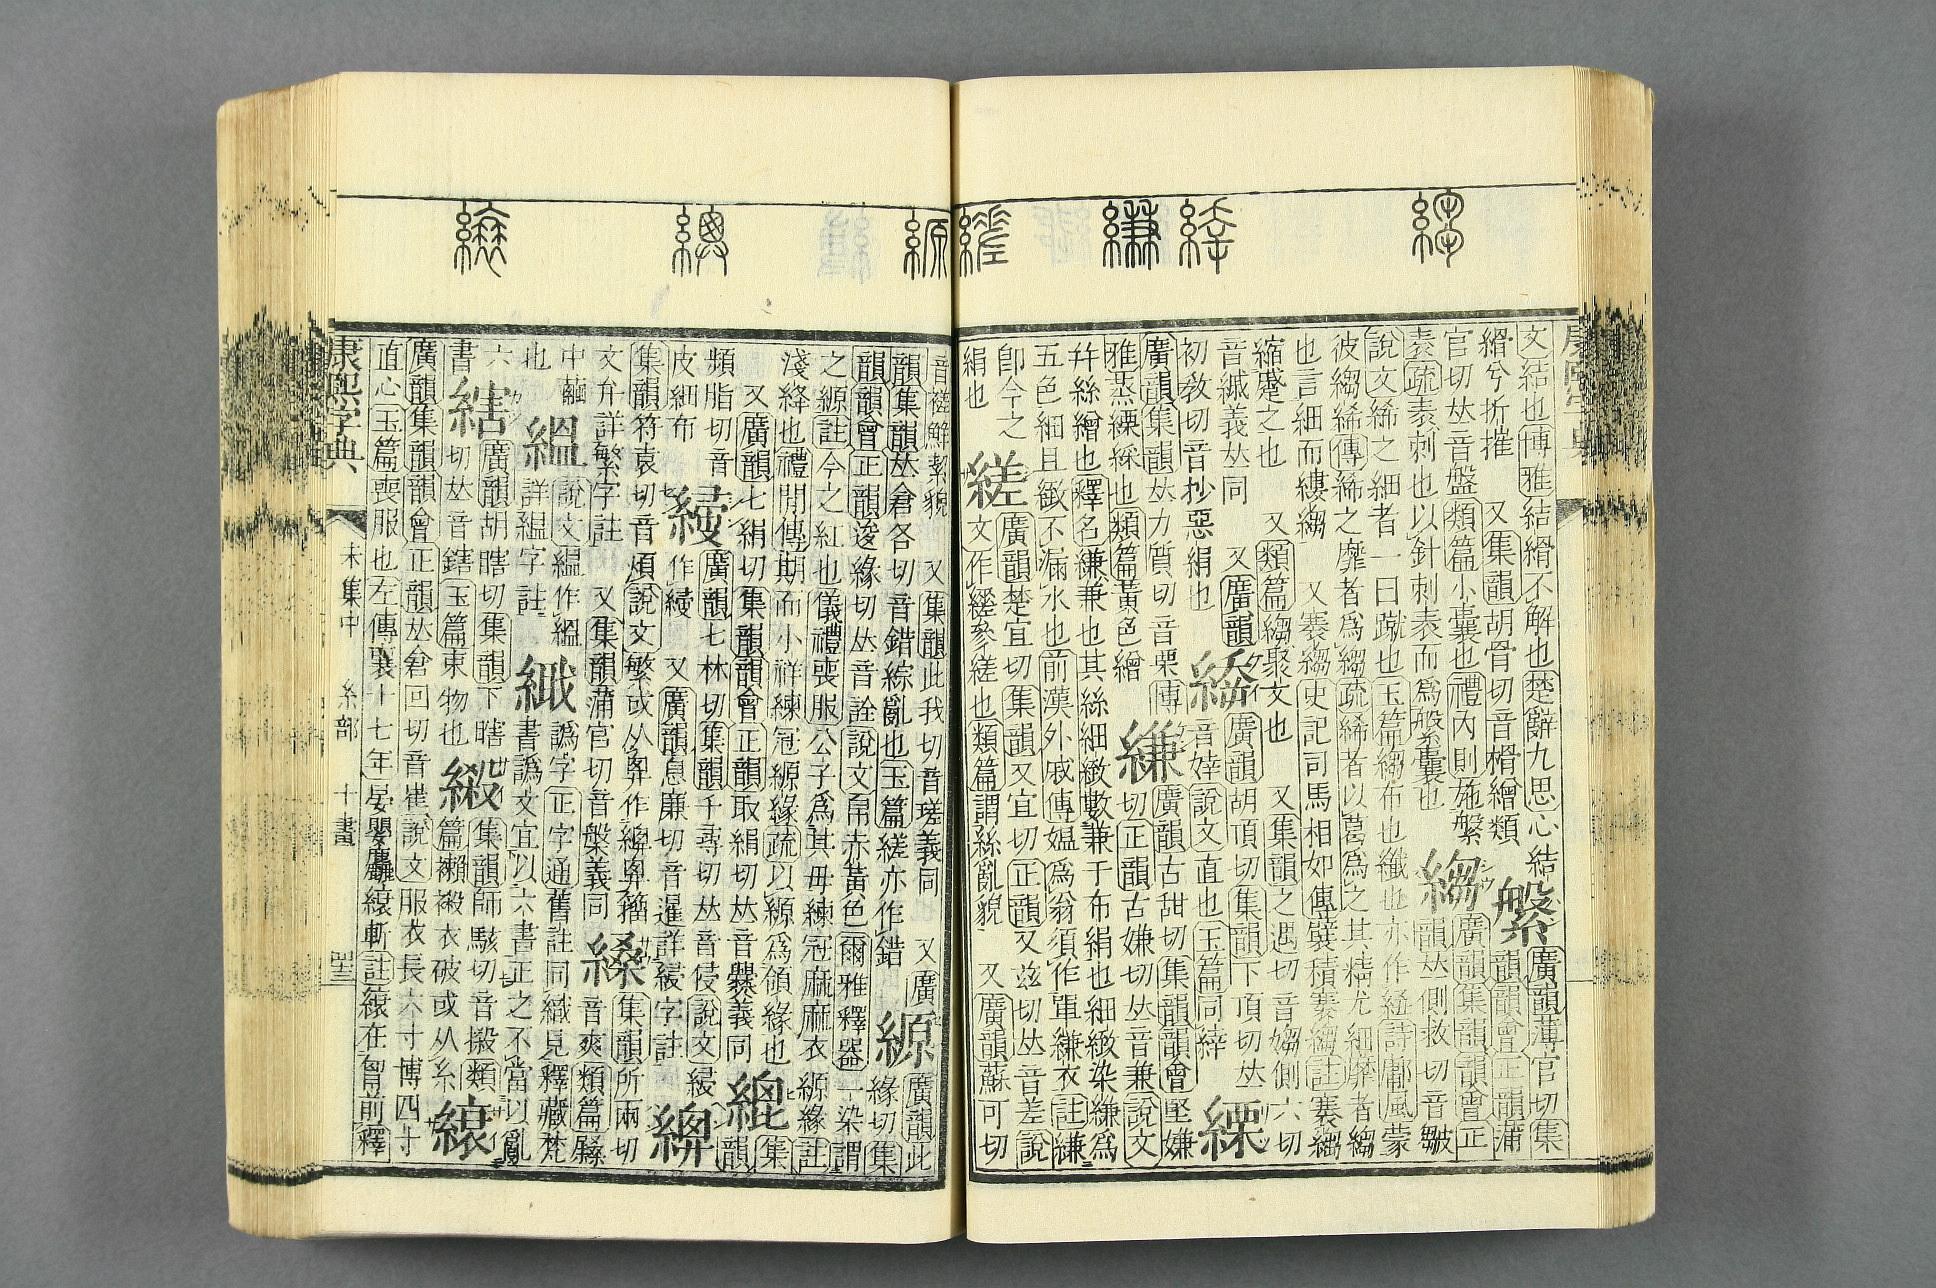 康熙字典
文結也博雅結縎不解也楚辭九思心結
縎兮折摧 又集韻胡骨切音榾繒類
縏
廣韻薄官切集
韻韻會正韻蒲
官切𠀤音盤類篇小囊也禮內則施縏
袠疏袠刺也以針刺袠而爲縏囊也
縐
廣韻集韻韻會正
韻𠀤側救切音皺
說文絺之細者一曰蹴也玉篇縐布也纖也亦作䋓詩鄘風蒙
彼縐絺傳絺之靡者爲縐疏絺者以葛爲之其精尤細靡者縐
也言細而縷縐 又褰縐史記司馬相如傳襞積褰縐註褰縐
縮蹙之也 又類篇縐聚文也 又集韻之遇切 側六切
音縬義𠀤同 又廣韻
初敎切音抄惡絹也
廣韻胡頂切集韻下頂切𠀤
音婞說文直也玉篇同緈
縥
廣韻集韻𠀤力質切音栗博
雅烝縥綵也類篇黃色繒
縑
廣韻古甜切集韻韻會堅嫌
切正韻古嫌切𠀤音兼說文
幷絲繒也釋名縑兼也其絲細緻數兼于布絹也細緻染縑爲
五色細且緻不漏水也前漢外戚傳媼爲翁須作單縑衣註縑
卽今之
絹也
縒
廣韻楚宜切集韻又宜切正韻又玆切𠀤音差說
文作縒參縒也類篇謂絲亂貌 又廣韻蘇可切
音褨鮮絜貌 又集韻此我切音瑳義同 又廣韻此
韻集韻𠀤倉各切音錯綜亂也玉篇縒亦作錯
縓
廣韻此
緣切集
韻韻會正韻逡緣切𠀤音詮說文帛赤黃色爾雅釋器一染謂
之縓註今之紅也儀禮喪服公子爲其母練冠麻麻衣縓緣註
淺絳也禮閒傳期而小祥練冠縓緣疏以縓爲領緣也
又廣韻七絹切集韻韻會正韻取絹切𠀤音爨義同
緼
集
韻
頻脂切音
皮細布
綅
廣韻七林切集韻千尋切𠀤音侵說文綅
作綅 又廣韻息廉切音暹詳綅字註
集韻符袁切音煩說文繁或从𢍏作
文弁詳繁字註 又集韻蒲官切音槃義同
縔
集韻所兩切
音爽類篇
中繭
也
縕
說文縕作緼
詳緼字註
譌字正字通舊註同織見釋藏梵
書譌文宜以六書正之不當以亂
六
書
縖
廣韻胡瞎切集韻下瞎
切𠀤音鎋玉篇束物也
集韻師駭切音摋類
篇襰 衣破或从糸
縗
廣韻集韻韻會正韻𠀤倉回切音崔說文服衣長六寸博四寸
直心玉篇喪服也左傳襄十七年晏嬰麤縗斬註縗在胷前釋
康熙字典
未集中 糸部 十畫